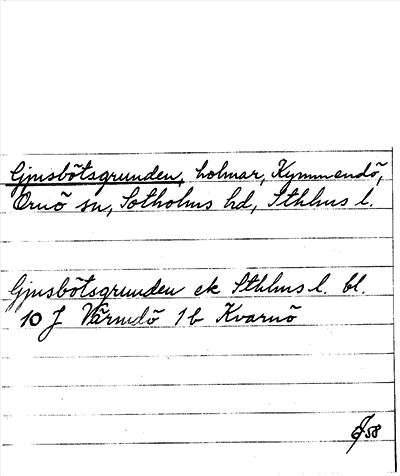 Gjusbötsgrunden, holmar, Kymmendö,
Ornö sn, Sotholms hd, Sthlms l.
Gjusbötsgrunden ek Sthlms l. bl.
10 J Värmdö 1b Kvarnö
58